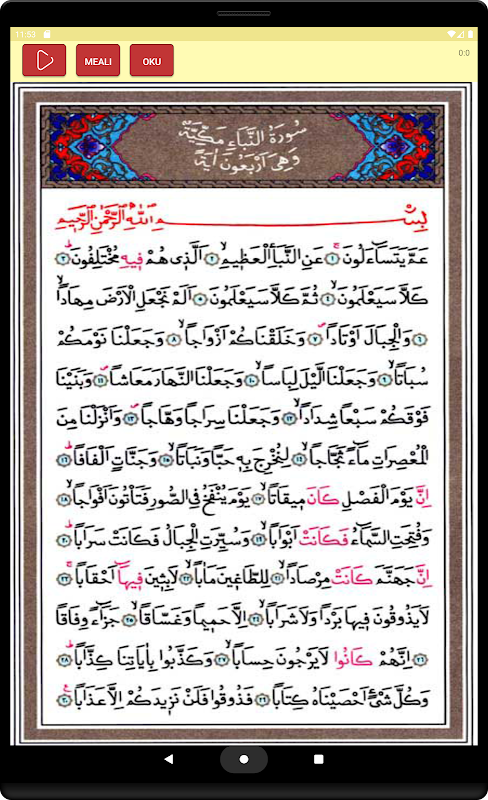 11:53
MEALİ
OKU
0:0
سُورَةُ النَّبَاءِ مَكِّيَّةٌ
وَهِىَ اَرْبَعُونَ اٰيَةً
بِسْــــــمِ اللّٰهِ الرَّحْمٰنِ الرَّحٖيمِ
عَمَّ يَتَسَٓاءَلُونَۚ ﴿١﴾ عَنِ النَّبَأِ الْعَظٖيمِۙ ﴿٢﴾ اَلَّذٖى هُمْ فٖيهِ مُخْتَلِفُونَؕ ﴿٣﴾
كَلَّا سَيَعْلَمُونَۙ ﴿٤﴾ ثُمَّ كَلَّا سَيَعْلَمُونَ ﴿٥﴾ اَلَمْ نَجْعَلِ الْاَرْضَ مِهَاداًۙ
﴿٦﴾ وَالْجِبَالَ اَوْتَاداًۙ ﴿٧﴾ وَخَلَقْنَاكُمْ اَزْوَاجاًۙ ﴿٨﴾ وَجَعَلْنَا نَوْمَكُمْ
سُبَاتاًۙ ﴿٩﴾ وَجَعَلْنَا الَّيْلَ لِبَاساًۙ ﴿١٠﴾ وَجَعَلْنَا النَّهَارَ مَعَاشاًۖ ﴿١١﴾ وَبَنَيْنَا
فَوْقَكُمْ سَبْعاً شِدَاداًۙ ﴿١٢﴾ وَجَعَلْنَا سِرَاجاً وَهَّاجاًۖ ﴿١٣﴾ وَاَنْزَلْنَا مِنَ
الْمُعْصِرَاتِ مَٓاءً ثَجَّاجاًۙ ﴿١٤﴾ لِنُخْرِجَ بِهٖ حَباًّ وَنَبَاتاًۙ ﴿١٥﴾ وَجَنَّاتٍ اَلْفَافاًؕ ﴿١٦﴾
اِنَّ يَوْمَ الْفَصْلِ كَانَ مٖيقَاتاًۙ ﴿١٧﴾ يَوْمَ يُنْفَخُ فِى الصُّورِ فَتَأْتُونَ اَفْوَاجاًۙ ﴿١٨﴾
وَفُتِحَتِ السَّمَٓاءُ فَكَانَتْ اَبْوَاباًۙ ﴿١٩﴾ وَسُيِّرَتِ الْجِبَالُ فَكَانَتْ سَرَاباًؕ ﴿٢٠﴾
اِنَّ جَهَنَّمَ كَانَتْ مِرْصَاداًۙ ﴿٢١﴾ لِلطَّاغٖينَ مَاٰباًۙ ﴿٢٢﴾ لَابِثٖينَ فٖيهَٓا اَحْقَاباًۚ ﴿٢٣﴾
لَا يَذُوقُونَ فٖيهَا بَرْداً وَلَا شَرَاباًۙ ﴿٢٤﴾ اِلَّا حَمٖيماً وَغَسَّاقاًۙ ﴿٢٥﴾ جَزَٓاءً وِفَاقاًؕ
﴿٢٦﴾ اِنَّهُمْ كَانُوا لَا يَرْجُونَ حِسَاباًۙ ﴿٢٧﴾ وَكَذَّبُوا بِاٰيَاتِنَا كِذَّاباًؕ ﴿٢٨﴾
وَكُلَّ شَىْءٍ اَحْصَيْنَاهُ كِتَاباًۙ ﴿٢٩﴾ فَذُوقُوا فَلَنْ نَزٖيدَكُمْ اِلَّا عَذَاباًࣖ ﴿٣٠﴾